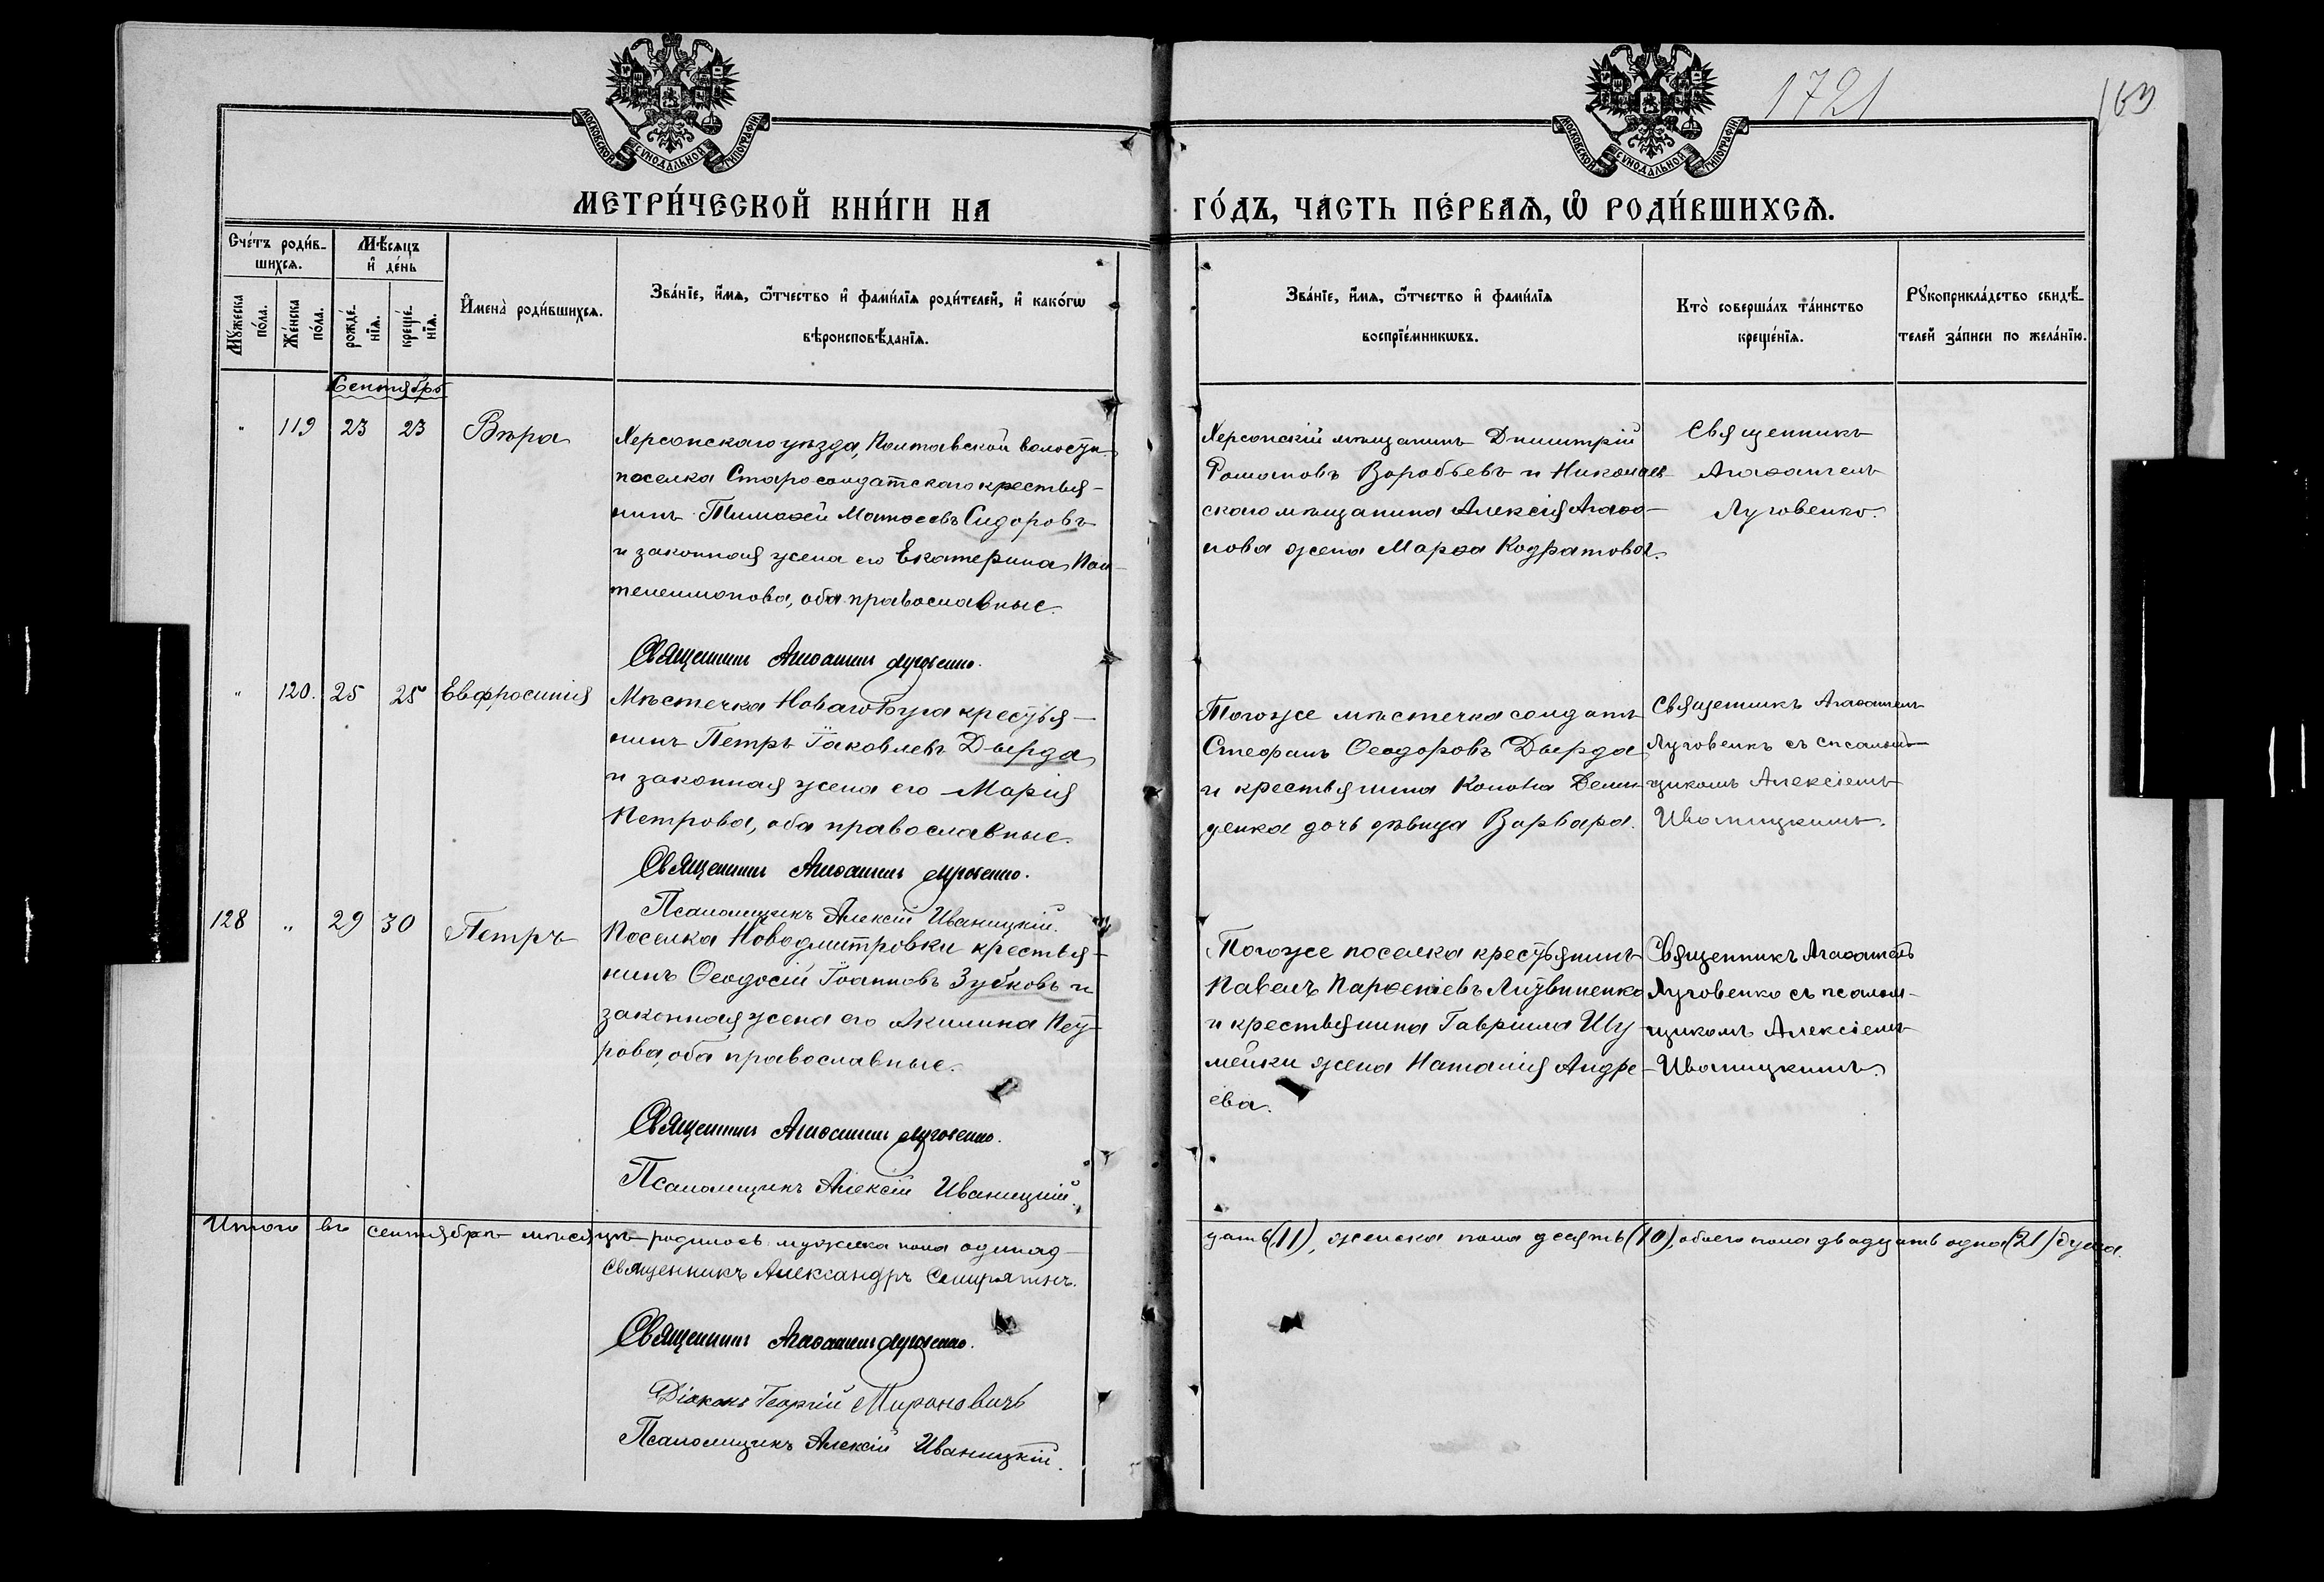 1721
163
МОСКОВСКОЙ СУНОДАЛЬНОЙ ТИПОГРАФІИ
МОСКОВСКОЙ СУНОДАЛЬНОЙ ТИПОГРАФІИ
МЕТРИ́ЧЕСКОЙ КНИ́ГИ НА
ГО́ДЪ, ЧА́СТЬ ПЕ́РВАѦ, Ѡ҆ РОДИ́ВШИХСѦ.
Сче́тъ роди́в-
шихсѧ.
Мѣ́сѧцъ
и҆ де́нь
Мꙋ́жеска
по́ла.
Же́нска
по́ла.
рожде́-
нїѧ.
креще́-
нїѧ.
И҆мена̀ роди́вшихсѧ.
Зва́нїе, и҆́мѧ, ѻ҆́тчество и҆ фами́лїѧ роди́телей, и҆ како́гѡ
вѣроисповѣ́данїѧ.
Зва́нїе, и҆́мѧ, ѻ҆́тчество и҆ фами́лїѧ
воспрїе́мникѡвъ.
Кто̀ соверша́лъ та́инство
креще́нїѧ.
Рꙋкоприкла́дство свидѣ́-
телей за́писи по жела́нїю.
Сентябрь
" 119 23 23 Вѣра
Херсонскаго уѣзда, Полтавской волости
поселка Старосолдатскаго крестья-
нинъ Тимоѳей Матѳеевъ Сидоровъ
и законная жена его Екатерина Пан-
телеимонова, оба православные.
Священникъ Агаѳангелъ Луговенко.
Херсонскій мѣщанинъ Димитрій
Романовъ Воробьевъ и Николаев-
скаго мѣщанина Алексія Агаѳо-
нова жена Марѳа Кодратова.
Священникъ
Агаѳангелъ
Луговенко.
" 120. 25 25 Евфросинія
Мѣстечка Новаго Буга крестья-
нинъ Петръ Іаковлевъ Дырда
и законная жена его Марія
Петрова, оба православные.
Священникъ Агаѳангелъ Луговенко.
Псаломщикъ Алексій Иваницкій.
Тогоже мѣстечка солдатъ
Стефанъ Ѳеодоровъ Дырда
и крестьянина Конона Деми-
денка дочь дѣвица Варвара.
Священникъ Агаѳангелъ
Луговенко съ псалом-
щикомъ Алексіемъ
Иваницкимъ.
128 " 29 30 Петръ
Поселка Новодмитровки крестья-
нинъ Ѳеодосій Іоанновъ Зубковъ и
законная жена его Акилина Пет-
рова, оба православные.
Священникъ Агаѳангелъ Луговенко.
Псаломщикъ Алексій Иваницкій.
Тогоже поселка крестьянинъ
Павелъ Парѳеніевъ Литвиненко
и крестьянина Гавріила Шу-
мейки жена Наталія Андре-
ева.
Священникъ Агаѳангелъ
Луговенко съ псалом-
щикомъ Алексіемъ
Иваницкимъ.
Итого въ сентябрѣ мѣсяцѣ родилось мужеска пола одинад-
цать (11), женска пола десять (10), обоего пола двадцать одна (21) душа.
Священникъ Александръ
Священникъ Агаѳангелъ Луговенко.
Діаконъ Георгій Мироновичъ
Псаломщикъ Алексій Иваницкій.